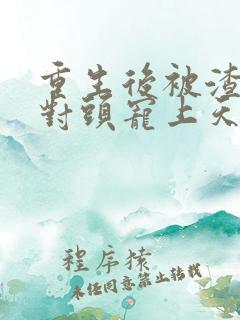 重生後被渣
對頭寵上天
程序猿
未經同意禁止轉載